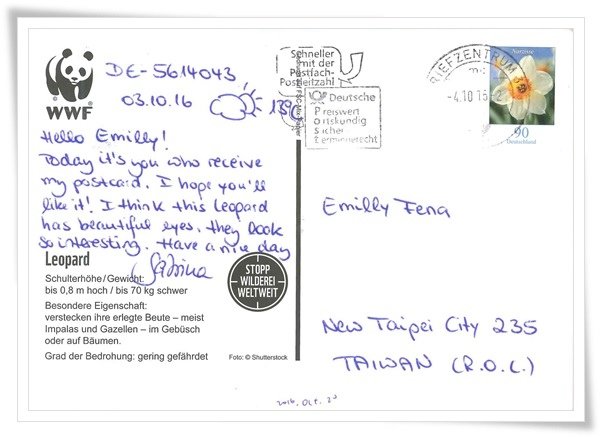 WWF
DE-5614043
03.10.16
13°C
Hello Emilly!
Today it's you who receive
my postcard. I hope you'll
like it! I think this Leopard
has beautiful eyes, they look
so interesting. Have a nice day
Sabrina
Leopard
Schulterhöhe/Gewicht:
bis 0,8 m hoch / bis 70 kg schwer
Besondere Eigenschaft:
verstecken ihre erlegte Beute – meist
Impalas und Gazellen – im Gebüsch
oder auf Bäumen.
Grad der Bedrohung: gering gefährdet
STOPP
WILDEREI
WELTWEIT
Foto: © Shutterstock
Schneller
mit der
Postfach-
Postleitzahl
Deutsche
Preiswert
Ortskundig
Sicher
Termingerecht
BRIEFZENTRUM
-4.10.16
Narzisse
90
Deutschland
Emilly Feng
New Taipei City 235
TAIWAN (R.O.C.)